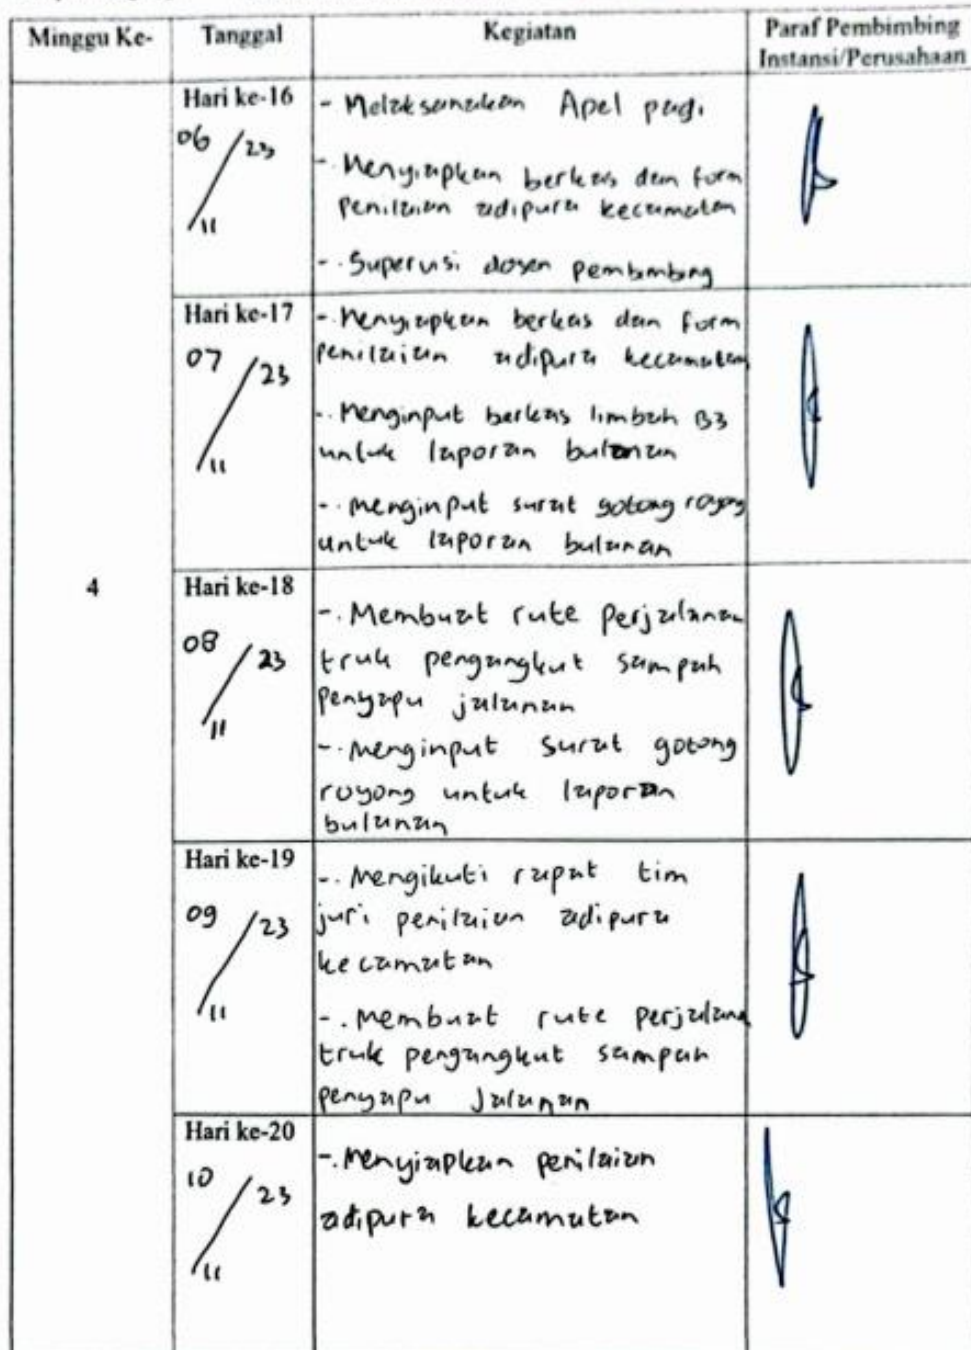 Minggu Ke-
Tanggal
Kegiatan
Paraf Pembimbing
Instansi/Perusahaan
4
Hari ke-16
06/11/23
- Melaksanakan Apel pagi
- Menyiapkan berkas dan form
penilaian adipura kecamatan
- Supervisi dosen pembimbing
Hari ke-17
07/11/23
- Menyiapkan berkas dan form
penilaian adipura kecamatan
- Menginput berkas limbah B3
untuk laporan bulanan
- menginput surat gotong royong
untuk laporan bulanan
Hari ke-18
08/11/23
- Membuat rute perjalanan
truk pengangkut sampah
penyapu jalanan
- Menginput surat gotong
royong untuk laporan
bulanan
Hari ke-19
09/11/23
- Mengikuti rapat tim
juri penilaian adipura
kecamatan
- Membuat rute perjalana
truk pengangkut sampah
penyapu Jalanan
Hari ke-20
10/11/23
- Menyiapkan penilaian
adipura kecamatan